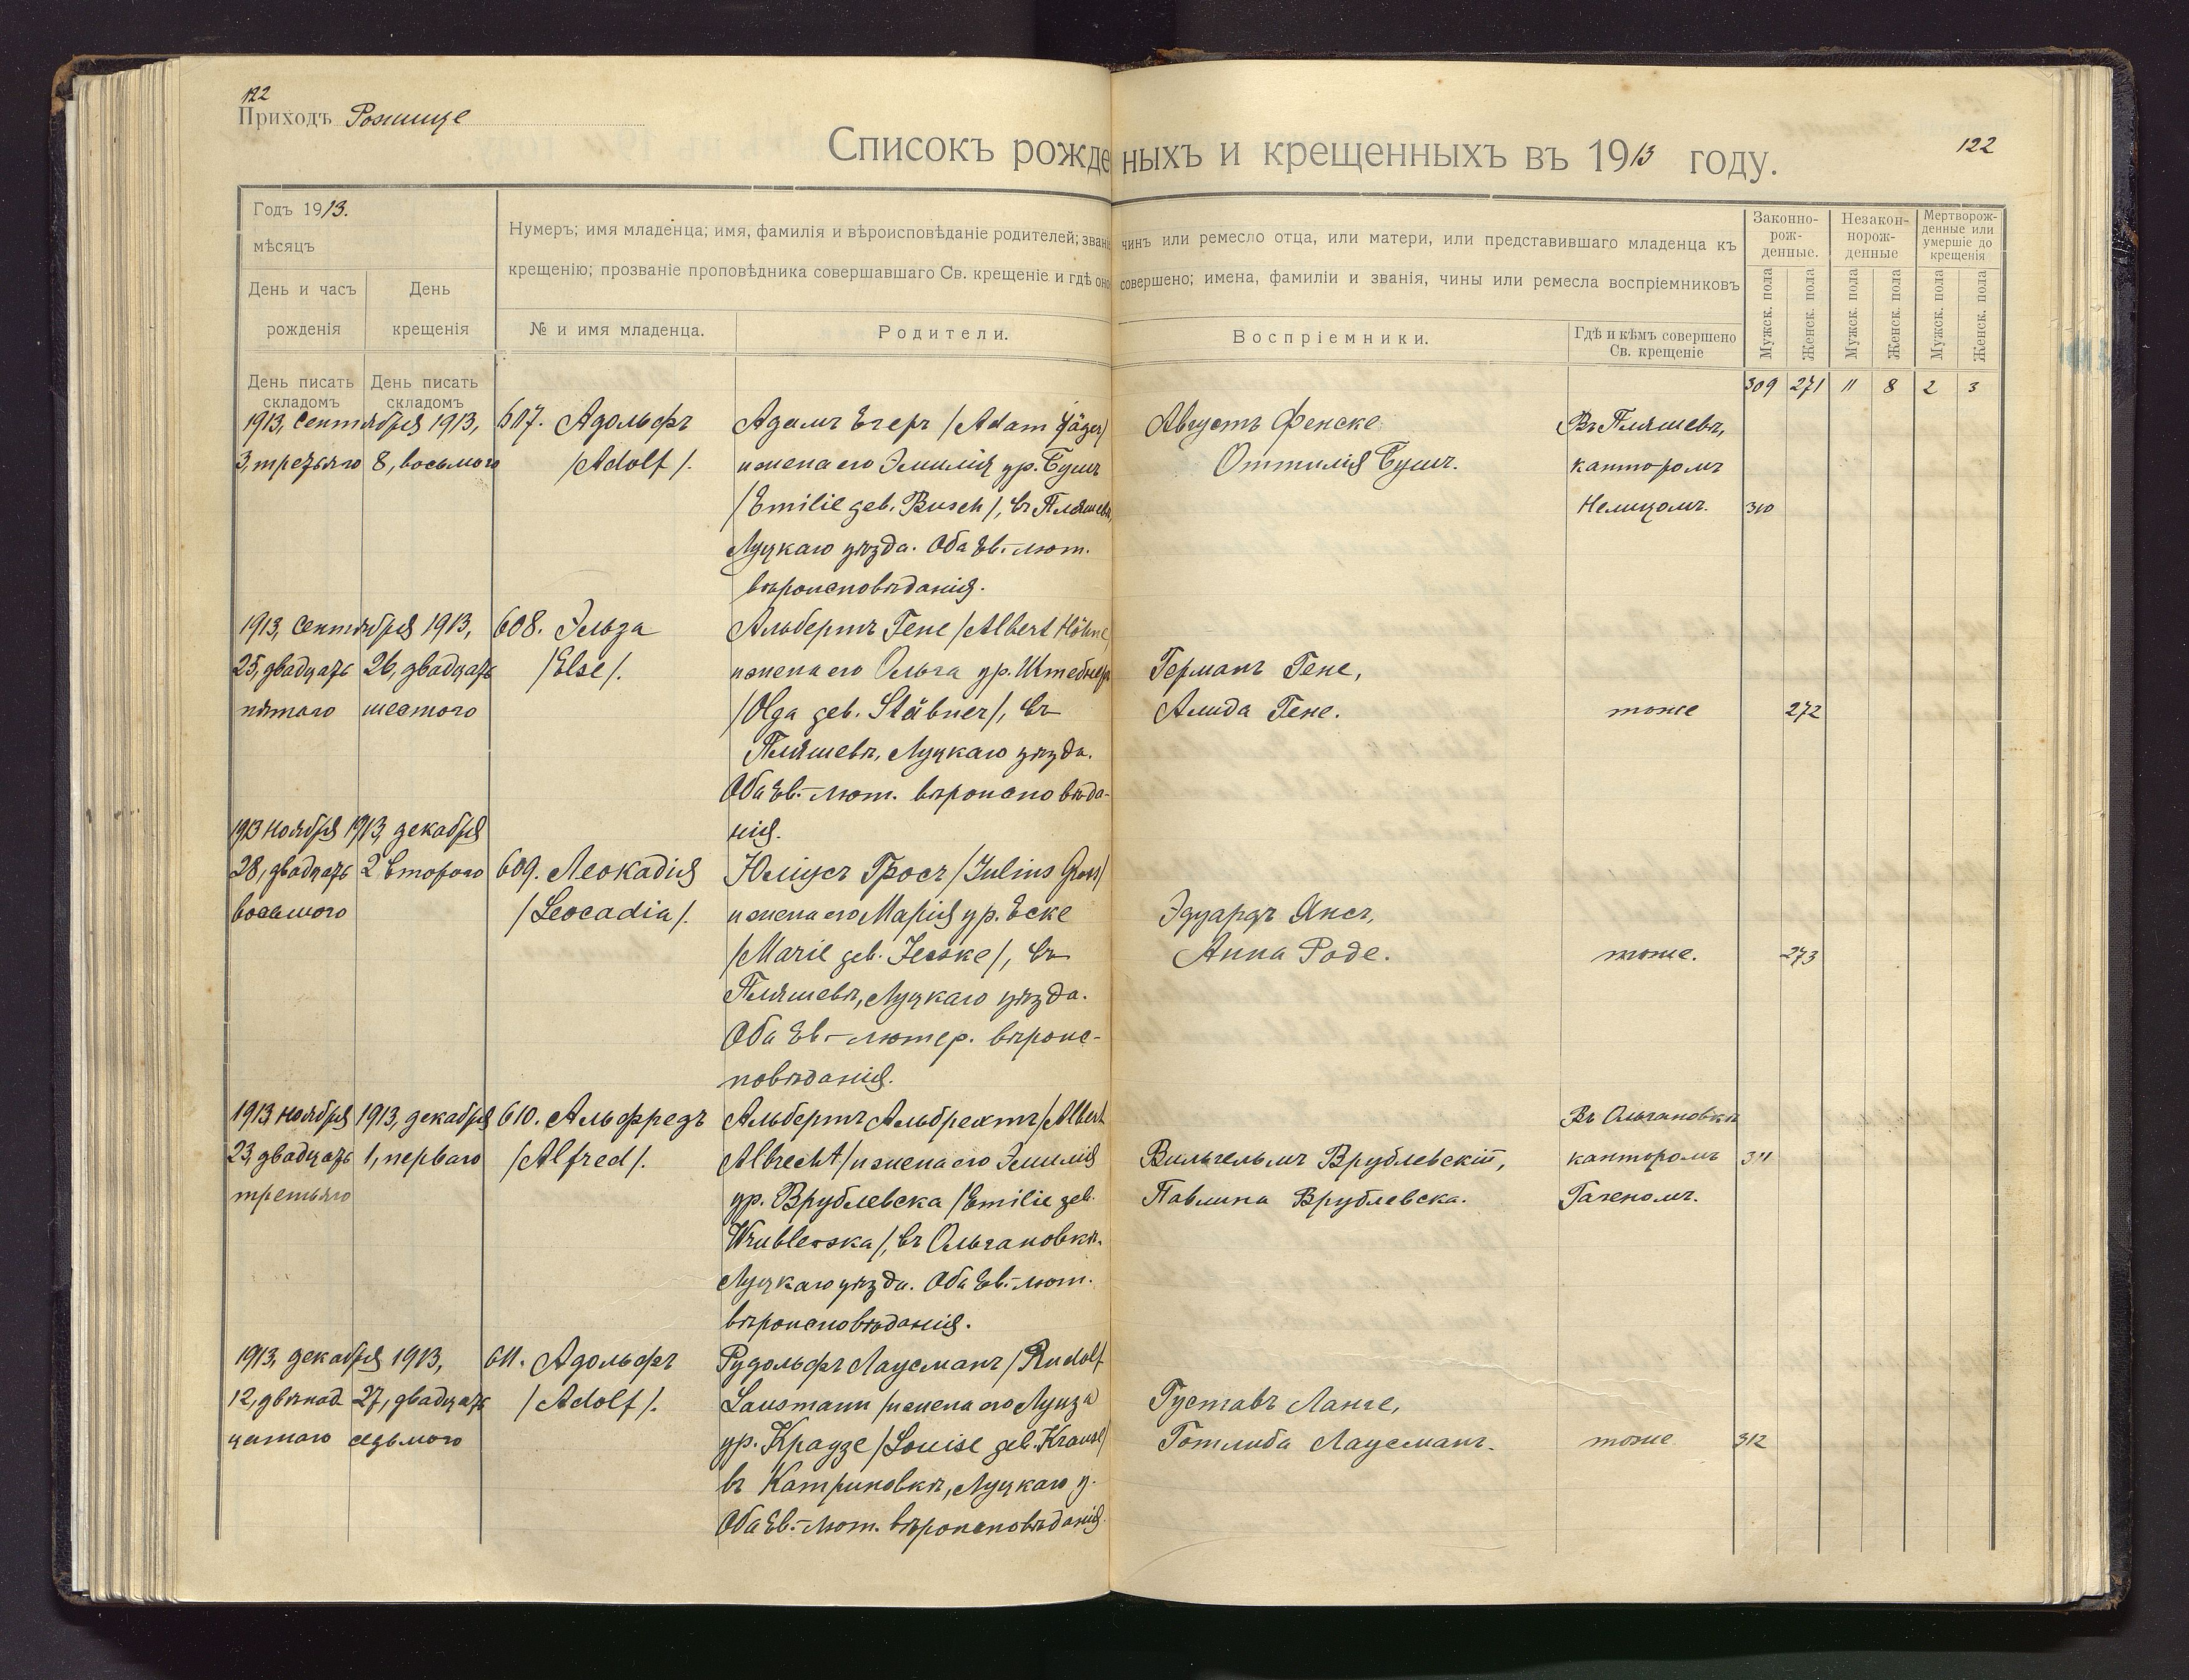 122
Приходъ Рожище
Списокъ рожденныхъ и крещенныхъ въ 1913 году.
122
Годъ 1913.
мѣсяцъ
День и часъ рожденія
День крещенія
Нумеръ; имя младенца; имя, фамилія и вѣроисповѣданіе родителей; званіе чинъ или ремесло отца, или матери, или представившаго младенца къ
крещенію; прозваніе проповѣдника совершавшаго Св. крещеніе и гдѣ оно совершено; имена, фамиліи и званія, чины или ремесла воспріемниковъ
№ и имя младенца.
Родители.
Воспріемники.
Гдѣ и кѣмъ совершено
Св. крещеніе
Законно-
рож-
денные.
Незакон-
норож-
денные
Мертворож-
денные или
умершіе до
крещенія
Мужск. пола
Женск. пола
Мужск. пола
Женск. пола
Мужск. пола
Женск. пола
День писать
складомъ
День писать
складомъ
309 271 11 8 2 3
1913, сентября 1913,
3, третьяго 8, восьмого
607. Адольфъ
/Adolf/.
Адамъ Егеръ /Adam Jäger/
и жена его Эмилія ур. Бушъ
/Emilie geb. Busch/, въ Пляшевѣ,
Луцкаго уѣзда. Оба Ев.-лют.
вѣроисповѣданія.
Августъ Фенске
Оттилія Бушъ.
Въ Пляшевѣ,
канторомъ
Немцомъ.
310
1913, сентября 1913,
25, двадцать 26, двадцать
пятаго шестого
608. Эльза
/Else/.
Альбертъ Гене /Albert Höhne/
и жена его Ольга ур. Штебнеръ
/Olga geb. Stäbner/, въ
Пляшевѣ, Луцкаго уѣзда.
Оба Ев.-лют. вѣроисповѣда-
нія.
Германъ Гене,
Алида Гене.
тоже
272
1913 ноября 1913, декабря
28, двадцать 2 второго
восьмого
609. Леокадія
/Leocadia/.
Юліусъ Гросъ /Julius Gross/
и жена его Марія ур. Еске
/Marie geb. Jeske/, въ
Пляшевѣ, Луцкаго уѣзда.
Оба Ев.-лютер. вѣроис-
повѣданія.
Эдуардъ Яксъ,
Анна Роде.
тоже.
273
1913 ноября 1913, декабря
23, двадцать 1, перваго
третьяго
610. Альфредъ
/Alfred/.
Альбертъ Альбрехтъ /Albert
Albrecht/ и жена его Эмилія
ур. Врублевска /Emilie geb.
Wrublewska/, въ Ольгановкѣ.
Луцкаго уѣзда. Оба Ев.-лют.
вѣроисповѣданія.
Вильгельмъ Врублевскій,
Павлина Врублевска.
Въ Ольгановкѣ
канторомъ
Гагеномъ.
311
1913, декабря 1913,
12, двѣнад 27, двадцать
цатаго седьмого
611. Адольфъ
/Adolf/.
Рудольфъ Лаусманъ /Rudolf
Lausmann/ и жена его Луиза
ур. Краузе /Louise geb. Krause/
въ Катриновкѣ, Луцкаго у.
Оба Ев.-лют. вѣроисповѣданія.
Густавъ Ланге,
Готлиба Лаусманъ.
тоже
312